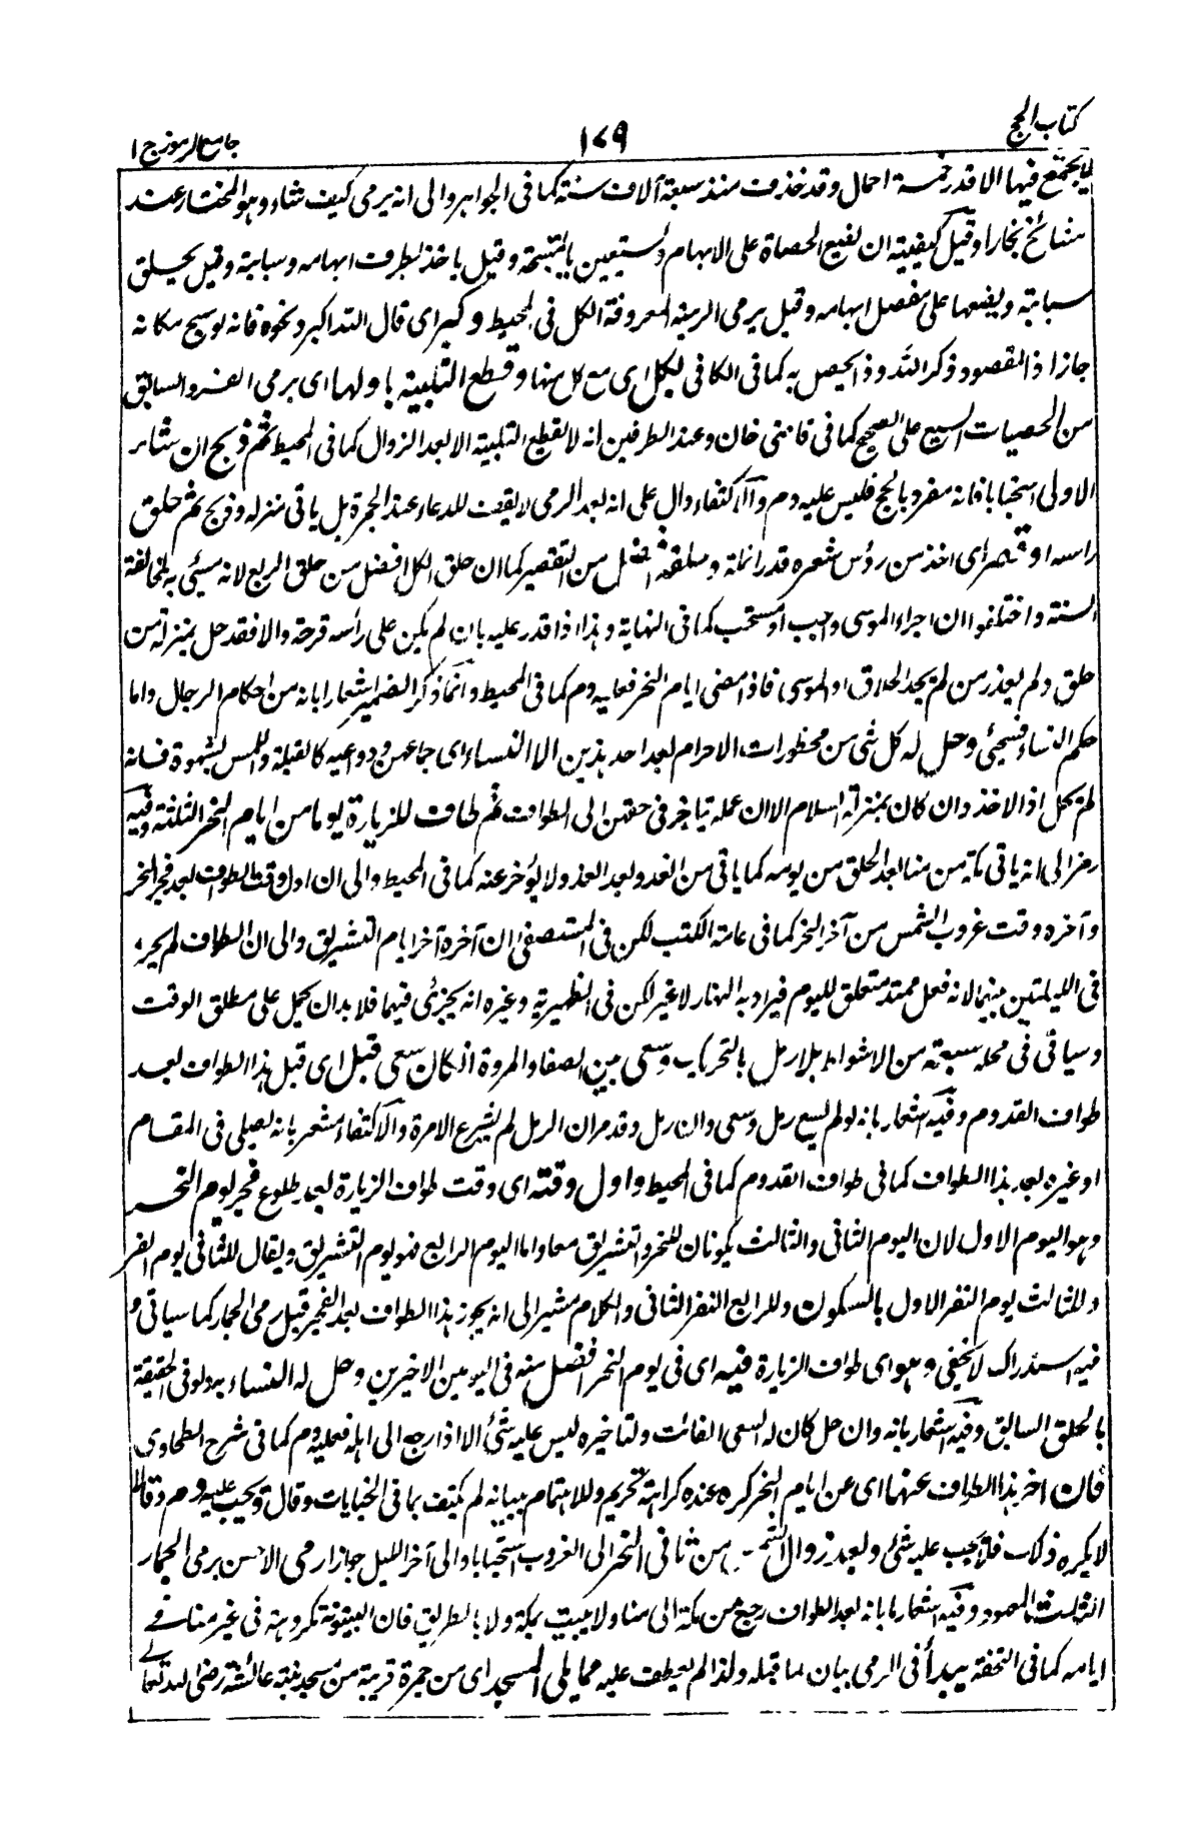 كتاب الحج
١٧٩
جامع الرموز ج ١
لا يجتمع فيها الا قدر خمسة احمال وقد خذفت منذ سبعة آلاف سنة كما فى الجواهر والى انه يرمى كيف شاء وهو المختار عند
مشائخ بخارا وقيل كيفيته ان يضع الحصاة على الابهام ويستعين بالمسبحة وقيل ياخذ بطرف ابهامه وسبابته وقيل يحلق
سبابته ويضعها على مفصل ابهامه وقيل يرمى الرمية المعروفة الكل فى المحيط وكبر اى قال الله اكبر ونحوه فانه لو سبح مكانه
جاز اذ المقصود ذكر الله وذا يحصل به كما فى الكافى لكل اى مع كل منها وقطع التلبية باولها اى برمى الفرد السابق
من الحصيات السبع على الصحيح كما فى قاضى خان وعند الطرفين انه لا يقطع التلبية الا بعد الزوال كما فى المحيط ثم ذبح ان شاء
الاولى استحبابا فانه مفرد بالحج فليس عليه دم والاكتفاء دال على انه بعد الرمى لا يقف للدعاء عند الجمرة بل ياتى منزله وذبح ثم حلق
راسه او قصر اى اخذ من رؤس شعره قدر انملة وحلقه افضل من التقصير كما ان حلق الكل افضل من حلق الربع لانه مسئ به لمخالفة
السنة واختلفوا ان اجراء الموسى واجب او مستحب كما فى النهاية وهذا اذا قدر عليه بان لم يكن على رأسه قرحة والا فقد حل بمنزلة من
حلق ولم يعذر من لم يجد الحلاق او الموسى فاذا مضى ايام النحر فعليه دم كما فى المحيط وانما ذكر الضمير اشعارا بانه من احكام الرجال واما
حكم النساء فسيجئ وحل له كل شئ من محظورات الاحرام بعد احد هذين الا النساء اى جماعهن ودواعيه كالقبلة واللمس بشهوة فانه
لم يحل اذ الاخذ وان كان بمنزلة السلام الا ان عمله تاخر فى حقهن الى الطواف ثم طاف للزيارة يوما من ايام النحر الثلثة وفيه
رمز الى انه ياتى مكة من منا بعد الحلق من يومه كما ياتى من الغد وبعد الغد ولا يؤخر عنه كما فى المحيط والى ان اول وقت الطواف بعد فجر النحر
وآخره وقت غروب الشمس من آخر النحر كما فى عامة الكتب لكن فى المستصفى ان آخره آخر ايام التشريق والى ان الطواف لم يجز
فى الليلتين بينهما لانه فعل ممتد متعلق لليوم فيراد به النهار لا غير لكن فى الظهيرية وغيره انه يجزئ فيهما فلا بد ان يحمل على مطلق الوقت
وسياتى فى محله سبعة من الاشواط بلا رمل بالتحريك وسعى بين الصفا والمروة ان كان سعى قبل اى قبل هذا الطواف بعد
طواف القدوم وفيه اشعار بانه لو لم يسع رمل وسعى وان رمل وقد مر ان الرمل لم يشرع الا مرة والاكتفاء مشعر بانه يصلى فى المقام
او غيره بعد هذا الطواف كما فى طواف القدوم كما فى المحيط واول وقته اى وقت طواف الزيارة بعد طلوع فجر يوم النحر
وهو اليوم الاول لان اليوم الثانى والثالث يكونان للنحر والتشريق معا واما اليوم الرابع فهو يوم التشريق ويقال للثانى يوم القر
وللثالث يوم النفر الاول بالسكون وللرابع النفر الثانى والكلام مشير الى انه يجوز هذا الطواف بعد الفجر قبل رمى الجمار كما سياتى و
فيه استدراك لا يخفى وهو اى طواف الزيارة فيه اى فى يوم النحر افضل منه فى اليومين الاخيرين وحل له النساء به ولو فى الحقيقة
بالحلق السابق وفيه اشعار بانه وان حل كان له السعى الفائت ولتاخيره ليس عليه شئ الا اذا رجع الى اهله فعليه دم كما فى شرح الطحاوى
فان اخر هذا الطواف عنها اى عن ايام النحر كره عنده كراهة تحريم وللاهتمام ببيانه لم يكتف بما فى الجنايات وقال ويجب عليه دم وقالا
لا يكره ذلك فلا يجب عليه شئ وبعد زوال الشمس من ثانى النحر الى الغروب استحبابا والى آخر الليل جوازا رمى الاحسن يرمى الجمار
الثلث المعهود وفيه اشعار بانه بعد الطواف رجع من مكة الى منا ولا يبيت بمكة ولا بالطريق فان البيتوتة مكروهة فى غير منا فى
ايامه كما فى التحفة يبدأ فى الرمى بيان لما قبله ولذا لم يعطف عليه مما يلى المسجد اى من جمرة قريبة من مسجد بنته عائشة رضى الله تعالى